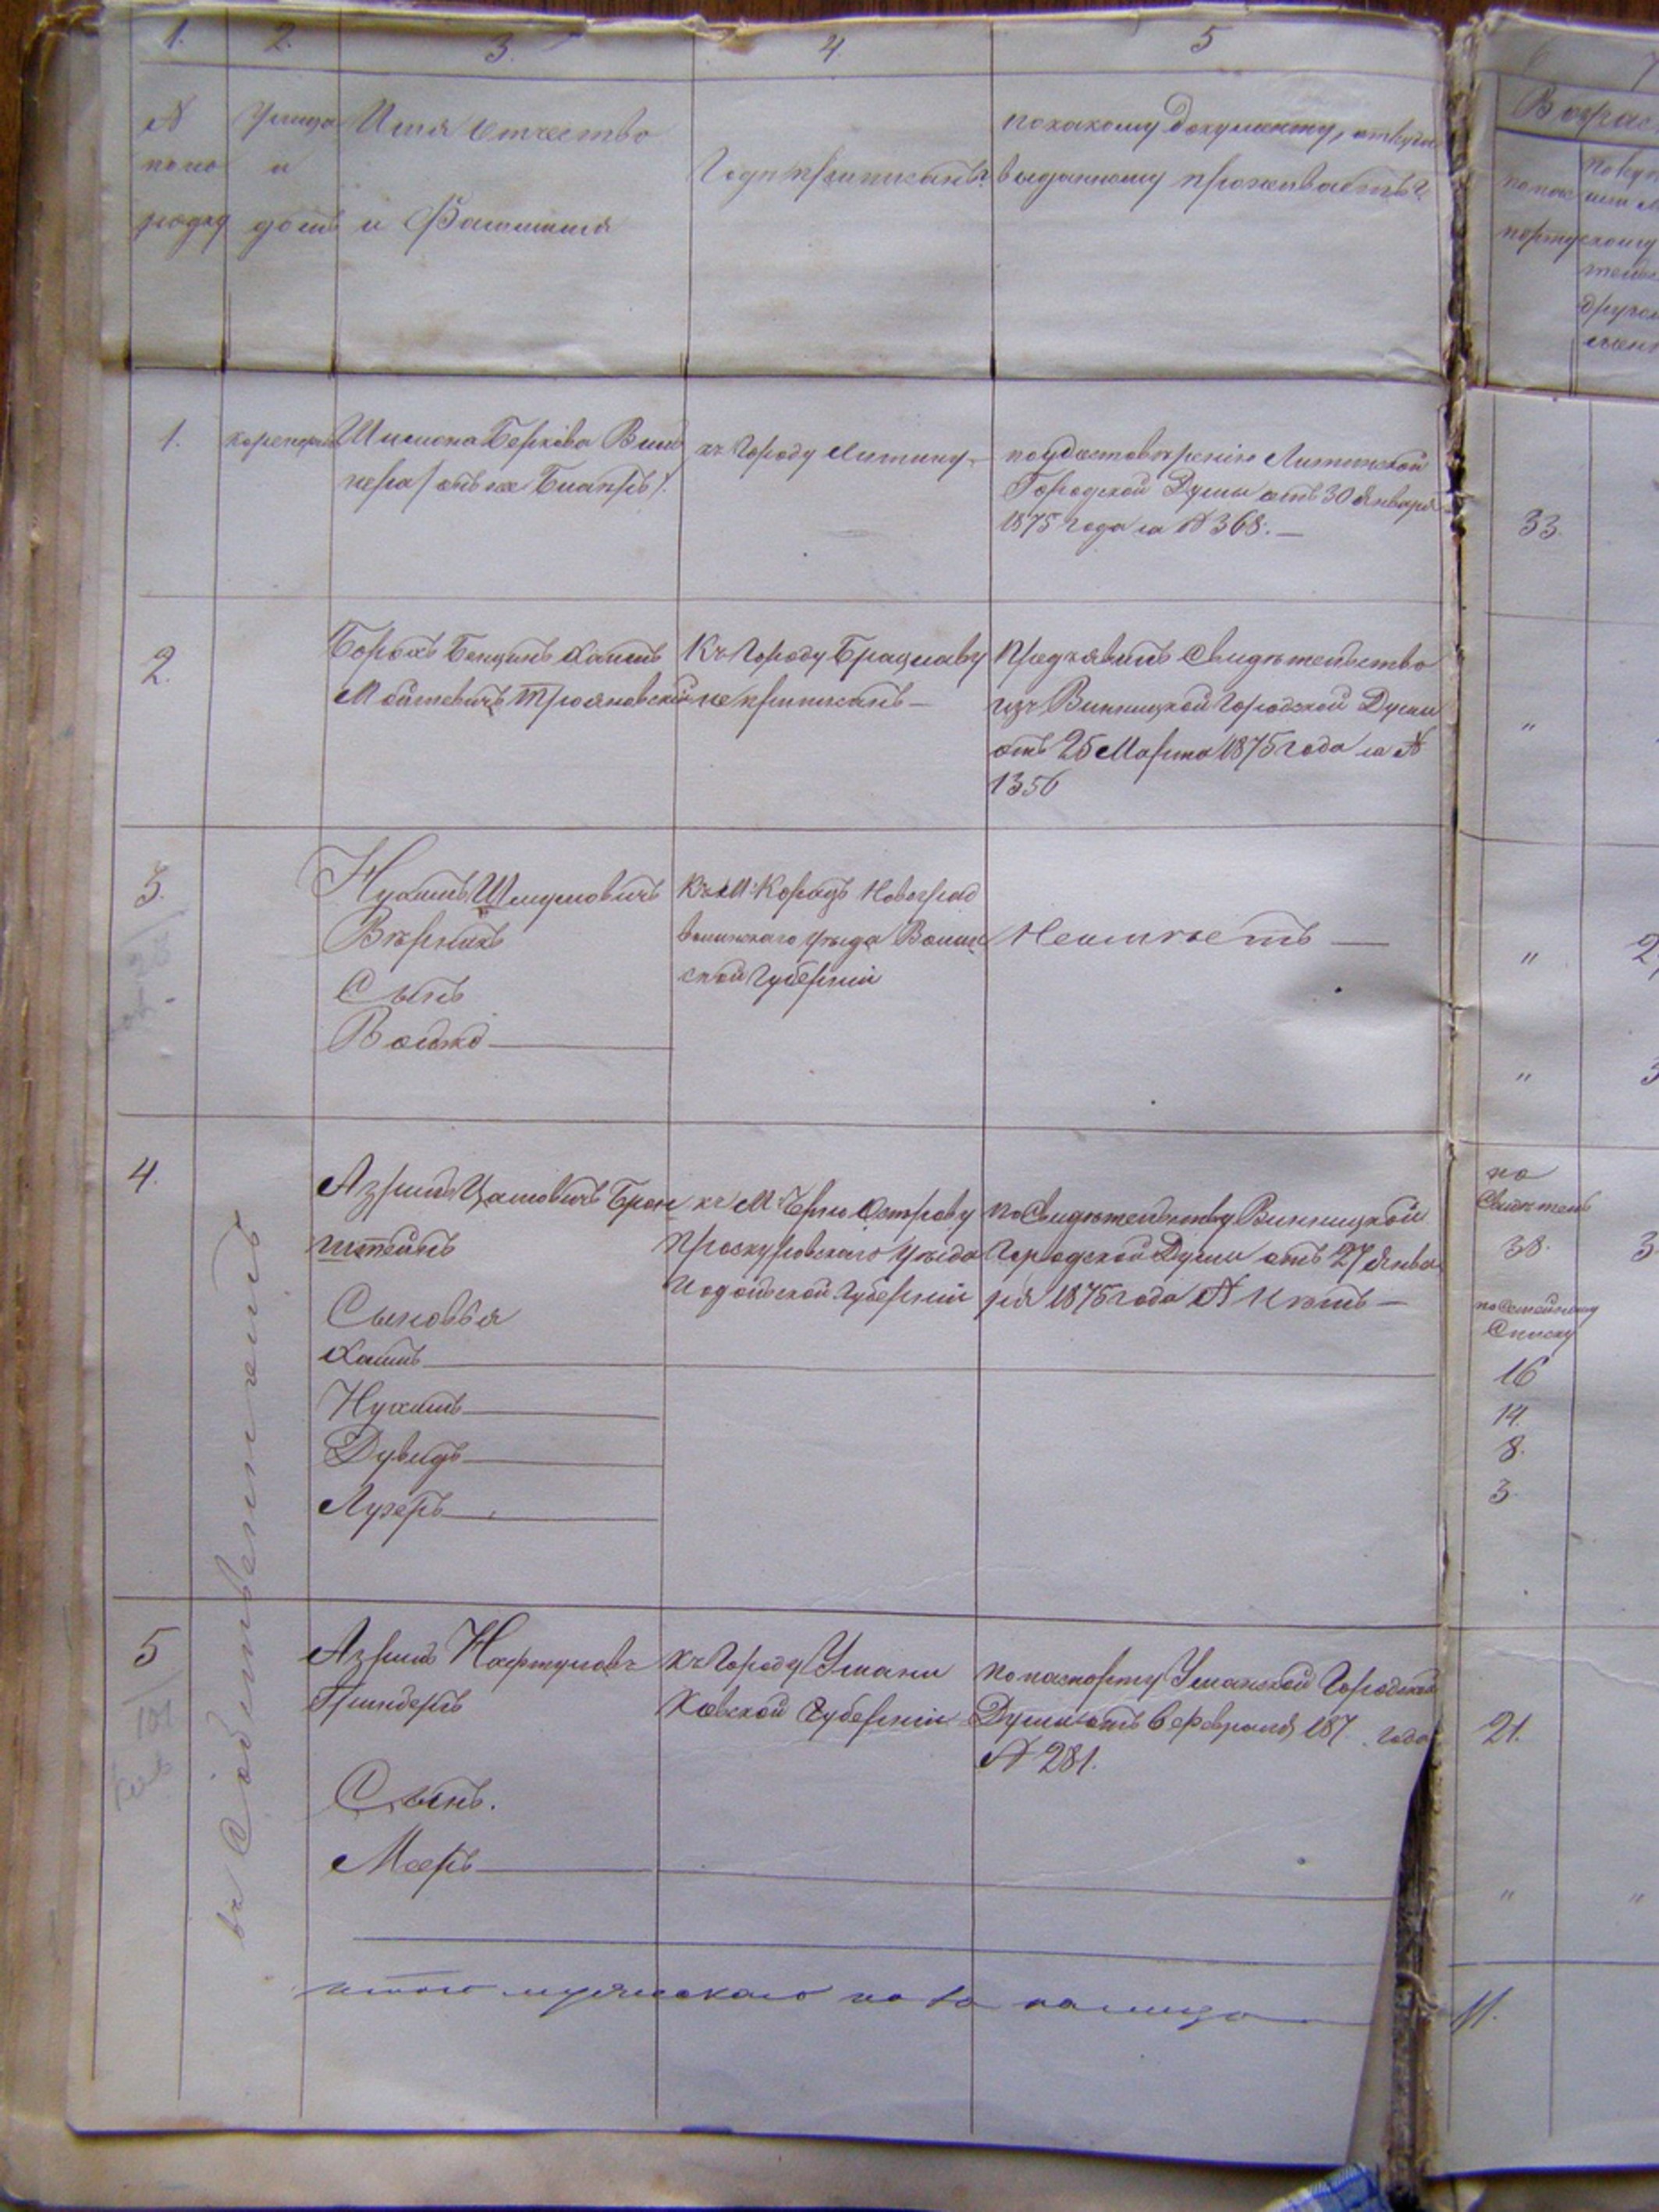 1. 2. 3. 4 5
№ по по рядку
Улица и домъ
Имя Отчество
и Фамилия
Годъ приписанъ?
по какому документу, откуда
выданному проживаетъ?
Возрас
1.
Шимона Беркова Вин
нера
къ Городу Литину
по удостоверенію Литинской
Городской Думы отъ 30 Января
1875 года за № 368. —
33.
2.
Борохъ Бенционъ Хаимъ
Мошкевичъ Трояновскій
Къ Городу Брацлаву
не приписанъ —
Предъявилъ Свидѣтельство
изъ Винницкой Городской Думы
отъ 25 Марта 1875 года за №
1356
"
3.
Нухимъ Шмулювичъ
Вѣрникъ
Сынъ
Волько
Къ М. Корецъ Новоград
волынскаго уѣзда Волын
ской Губерніи
Неимѣетъ —
"
"
4.
Азриль Цалювичъ Брон
штейнъ
Сыновья
Хаимъ
Нухимъ
Дувидъ
Лузеръ
къ М. Черно Острову
Проскуровскаго уѣзда
Подольской Губерніи
по Свидѣтельству Винницкой
Городской Думы отъ 27 Янва
ря 1875 года № Нѣтъ —
по
Свидѣтель
38.
по Семейному
Списку
16
14.
8.
3.
въ
5
101
Азриль Нафтулов
Гринбергъ
Сынъ.
Мееръ
къ Городу Умани
Кіевской Губерніи
по паспорту Уманской Городской
Думы отъ 6 Февраля 187 года
№ 281.
21.
"
"
итого мужескаго пола
11.